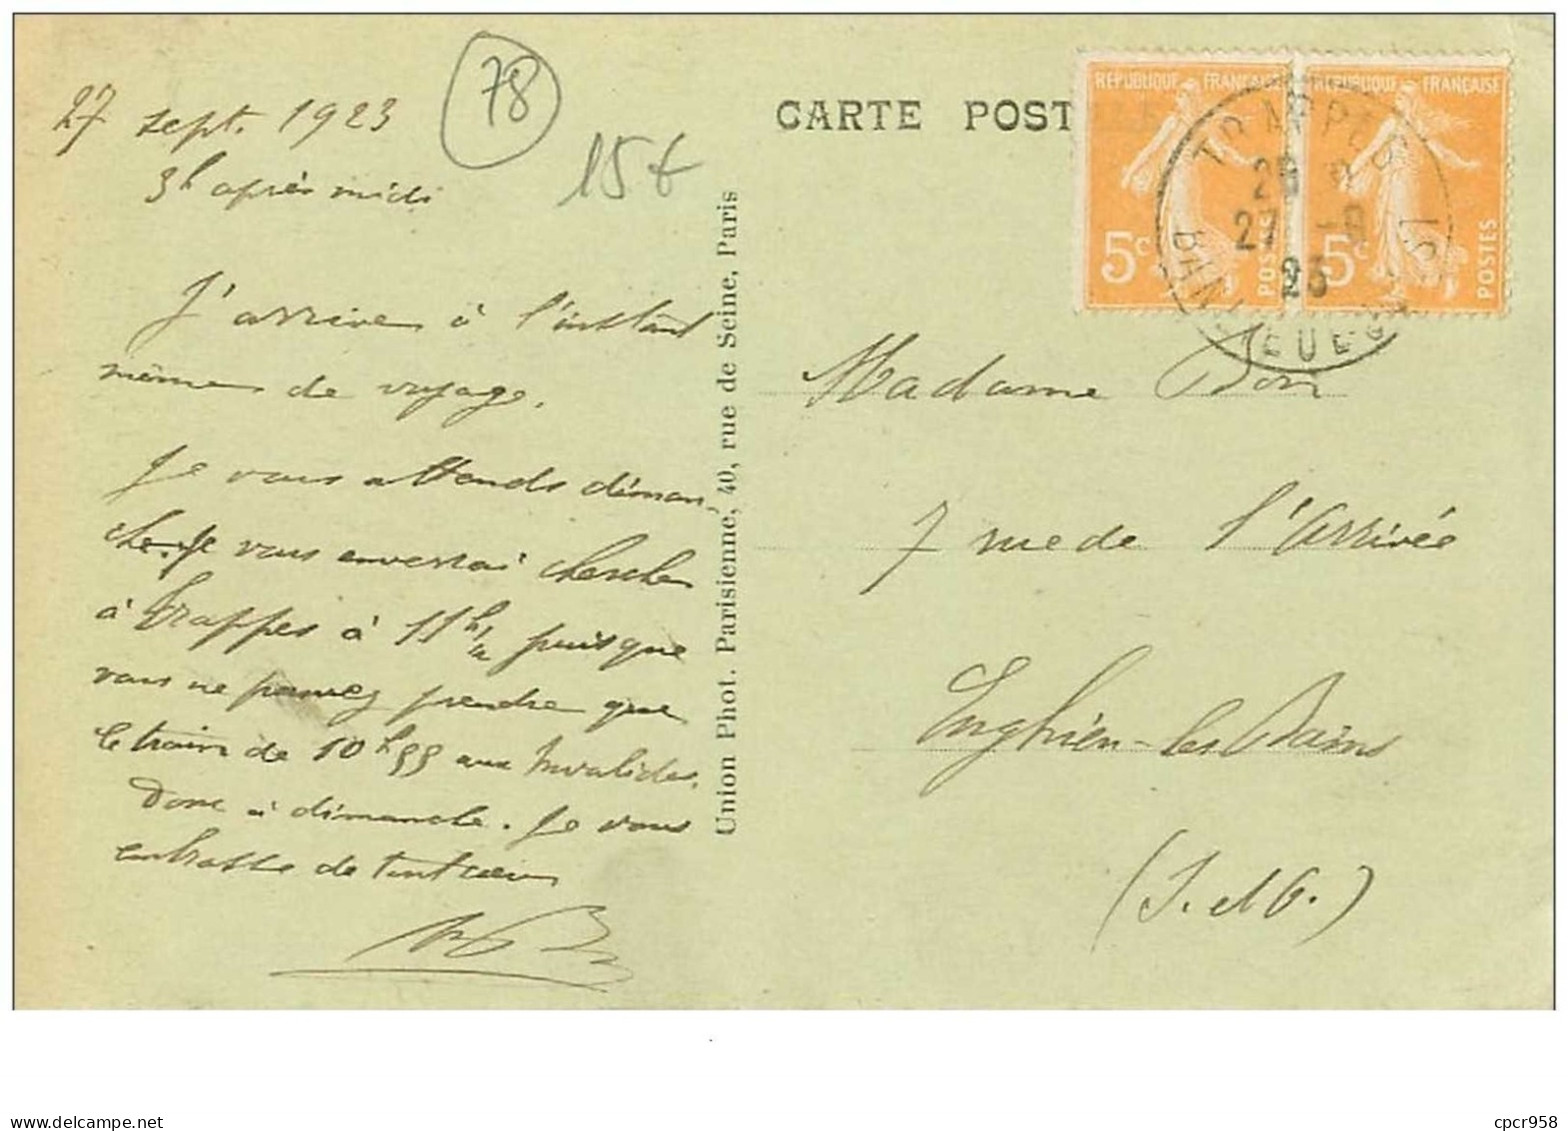 27 sept. 1923
3h après midi
78
15€
J'arrive à l'instant
même de voyage.
Je vous attends diman-
che. Je vous enverrai chercher
à Trappes à 11h 1/2 puisque
vous ne pouvez prendre que
le train de 10h55 aux Invalides.
Donc à dimanche. Je vous
embrasse de tout cœur
Union Phot. Parisienne, 40, rue de Seine, Paris
CARTE POST
REPUBLIQUE FRANÇAISE
5c
POSTES
REPUBLIQUE FRANÇAISE
5c
POSTES
TRAPPES
27 -9
23
Madame Bon
7 rue de l'Arrivée
Enghien-les Bains
(S. et O.)
www.delcampe.net
cpcr958